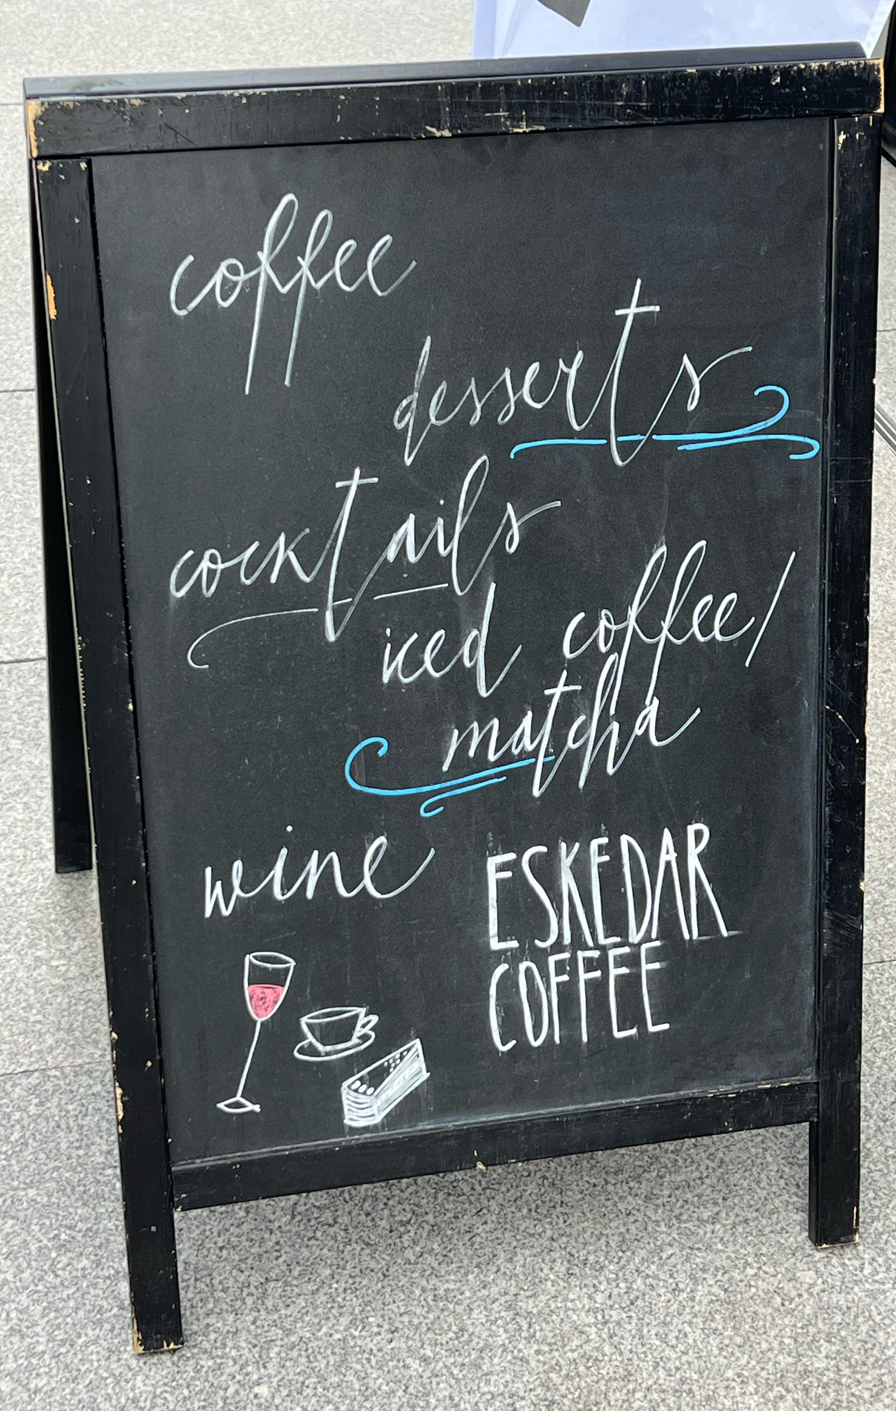 coffee
desserts
cocktails
iced coffee/
matcha
wine
ESKEDAR
COFFEE